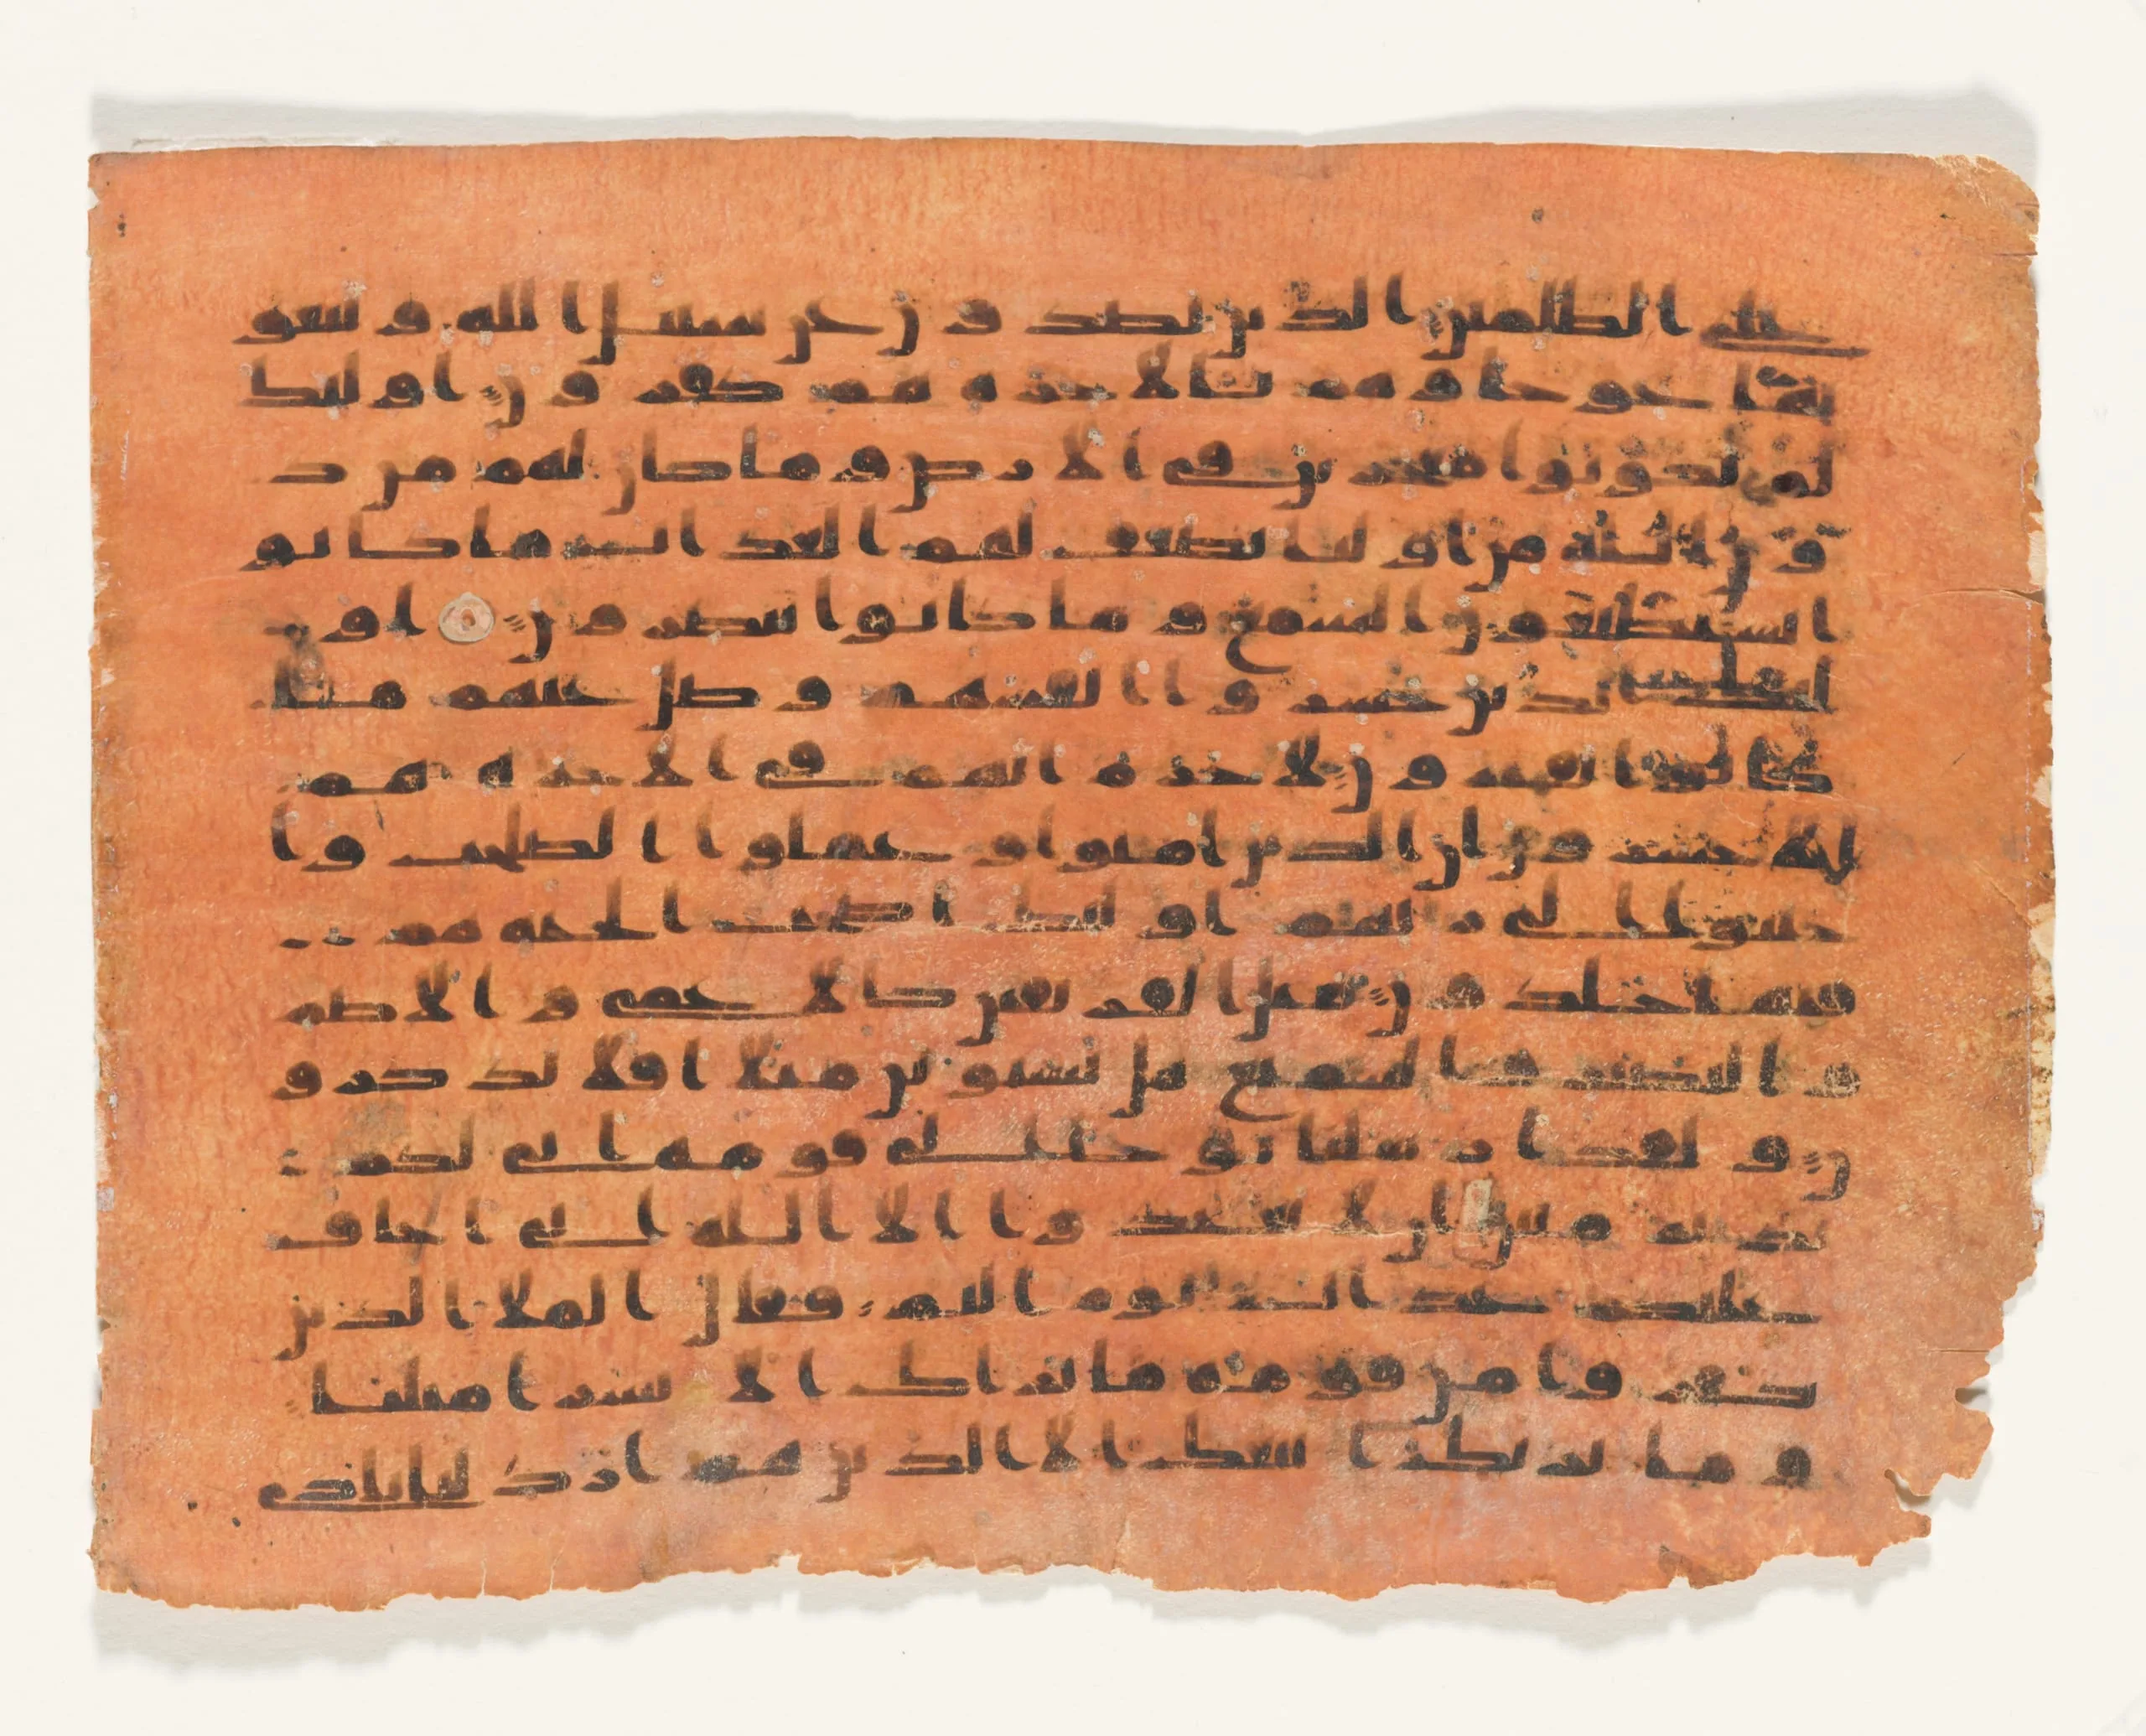 على الظلمين الذين يصدون عن سبيل الله ويبغو
نها عوجا وهم بالاخرة هم كفرون اوليك
لم يكونوا معجزين فى الارض وما كان لهم من د
ون الله من اوليا يضعف لهم العذاب ما كانو
ا يستطيعون السمع وما كانوا يبصرون او
ليك الذين خسروا انفسهم وضل عنهم ما
كانوا يفترون لا جرم انهم فى الاخرة هم
الاخسرون ان الذين امنوا وعملوا الصلحت وا
خبتوا الى ربهم اوليك اصحب الجنة هم
فيها خلدون مثل الفريقين كالاعمى والاصم
والبصير والسميع هل يستوين مثلا افلا تذكرو
ن ولقد ارسلنا نوحا الى قومه انى لكم
نذير مبين ان لا تعبدوا الا الله انى اخاف
عليكم عذاب يوم اليم فقال الملا الذين
كفروا من قومه ما نريك الا بشرا مثلنا
وما نريك اتبعك الا الذين هم ارذلنا بادى